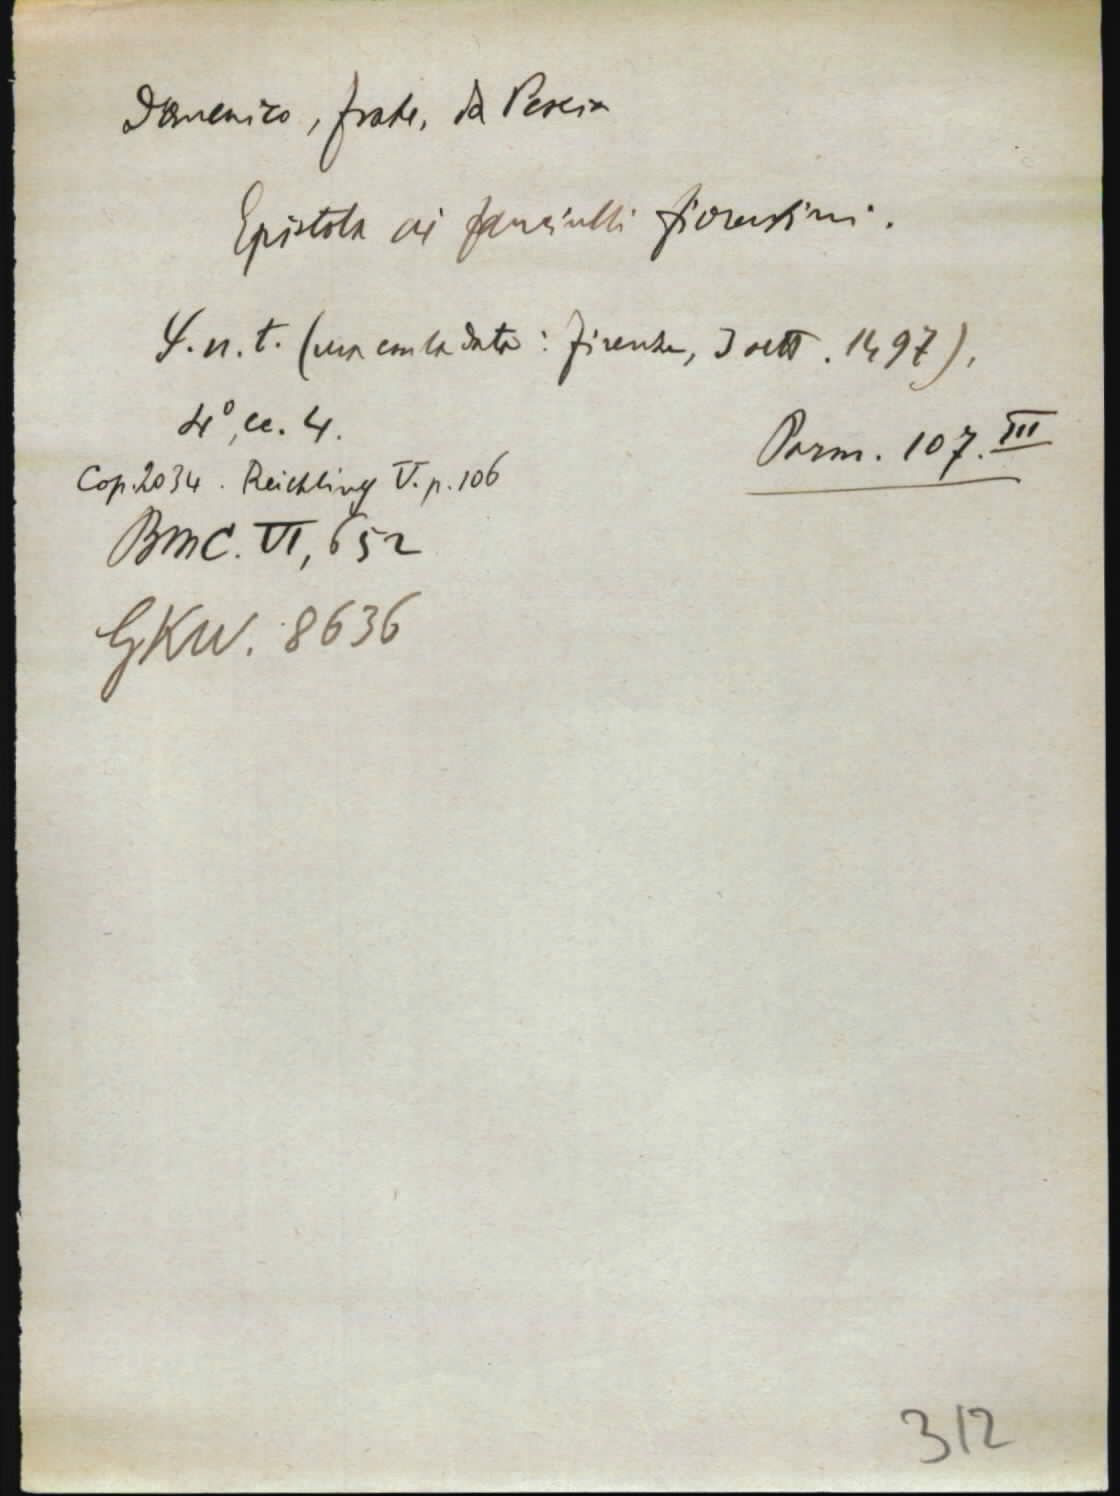 Domenico, frate, da Pescia
Epistola ai fanciulli fiorentini.
S. n. t. (ma con la data: Firenze, 3 sett. 1497),
4°, cc. 4.
Parm. 107.III
Cop. 2034. Reichling V. p. 106
BMC. VI, 652
GKW. 8636
312